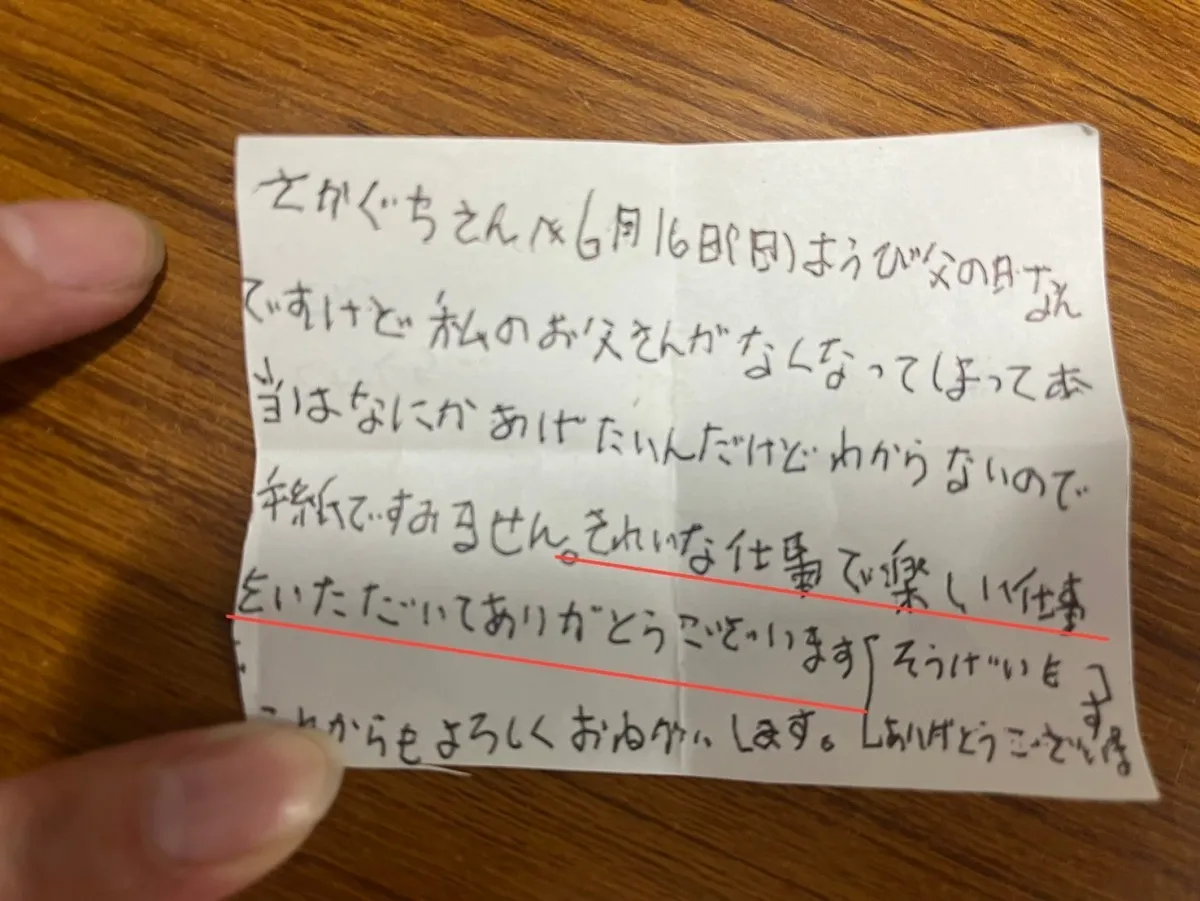 さかぐちさんへ6月16日(日)ようび父の日なん
ですけど私のお父さんがなくなってしまってお
当はなにかあげたいんだけどわからないので
手紙ですみません。きれいな仕事で楽しい仕事
をいただいてありがとうございます「そうげいも
これからもよろしくおねがいします。ありがとうございます」